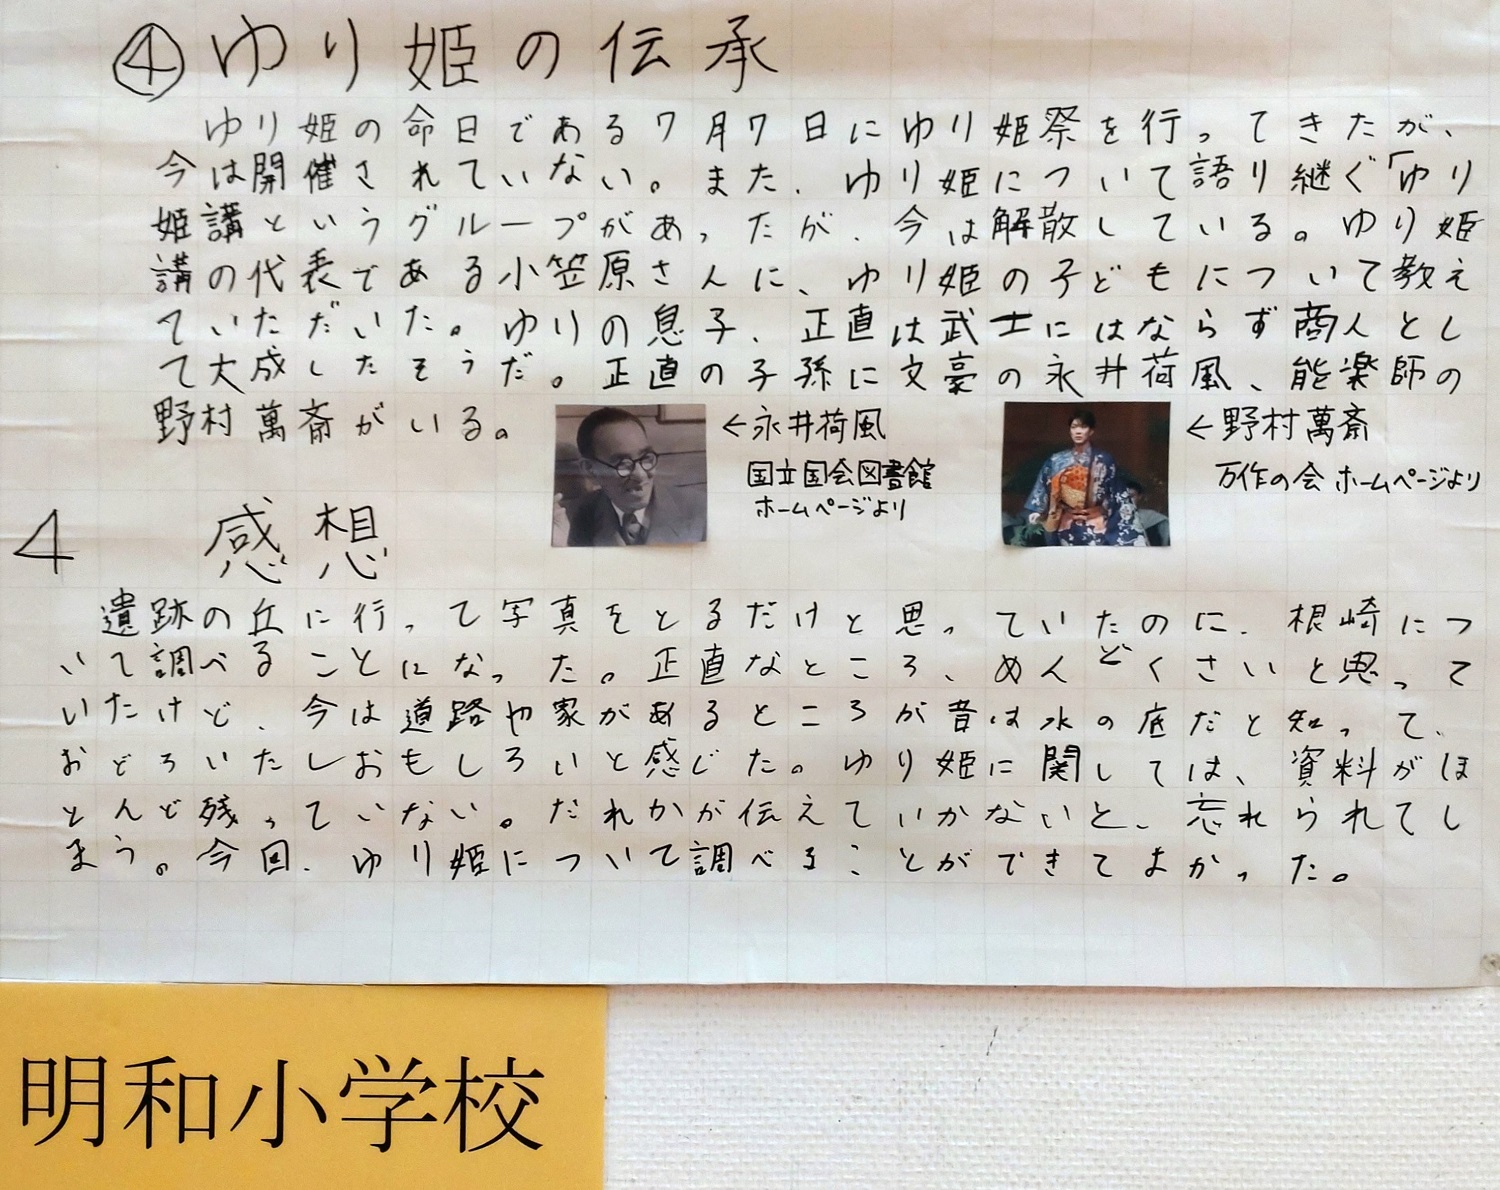 ④ゆり姫の伝承
ゆり姫の命日である7月7日にゆり姫祭を行ってきたが、
今は開催されていない。また、ゆり姫について語り継ぐ「ゆり
姫講というグループがあったが、今は解散している。ゆり姫
講の代表である小笠原さんに、ゆり姫の子どもについて教え
ていただいた。ゆりの息子、正直は武士にはならず商人とし
て大成したそうだ。正直の子孫に文豪の永井荷風、能楽師の
野村萬斎がいる。
←永井荷風
国立国会図書館
ホームページより
←野村萬斎
万作の会 ホームページより
4 感想
遺跡の丘に行って写真をとるだけと思っていたのに、根崎につ
いて調べることになった。正直なところ、めんどくさいと思って
いたけど、今は道路や家があるところが昔は水の底だと知って、
おどろいたしおもしろいと感じた。ゆり姫に関しては、資料がほ
とんど残っていない。だれかが伝えていかないと、忘れられてし
まう。今回、ゆり姫について調べることができてよかった。
明和小学校